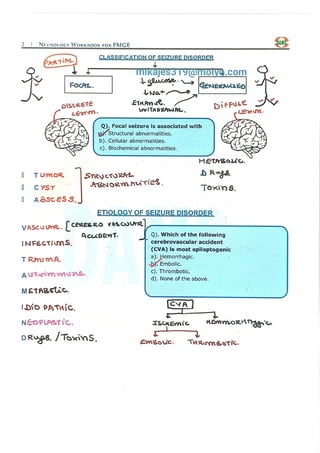 2 | NEUROLOGY WORKBOOK FOR FMGE
CLASSIFICATION OF SEIZURE DISORDER
PARTIAL
mikajes319@molyg.com
FOCAL
↓ glucose
GENERALIZED
↓ Na+
Ethanol
withdrawal
DISCRETE
Lesion.
DIFFUSE
Lesion.
Q). Focal seizure is associated with
a). Structural abnormalities.
b). Cellular abnormalities.
c). Biochemical abnormalities.
METABOLIC.
DRUGS
Toxins.
TUMOR
CYST
ABSCESS.
STRUCTURAL
ABNORMALITIES.
ETIOLOGY OF SEIZURE DISORDER
VASCULAR. [CEREBRO VASCULAR]
ACCIDENT.
INFECTIONS.
TRAUMA.
Autoimmune.
METABOLIC.
IDIOPATHIC.
NEOPLASTIC.
DRUGS. /Toxins.
Q). Which of the following
cerebrovascular accident
(CVA) is most epileptogenic
a). Hemorrhagic.
b). Embolic.
c). Thrombotic.
d). None of the above.
CVA
ISCHEMIC
HEMMORHAGIC
EMBOLIC.
THROMBOTIC.